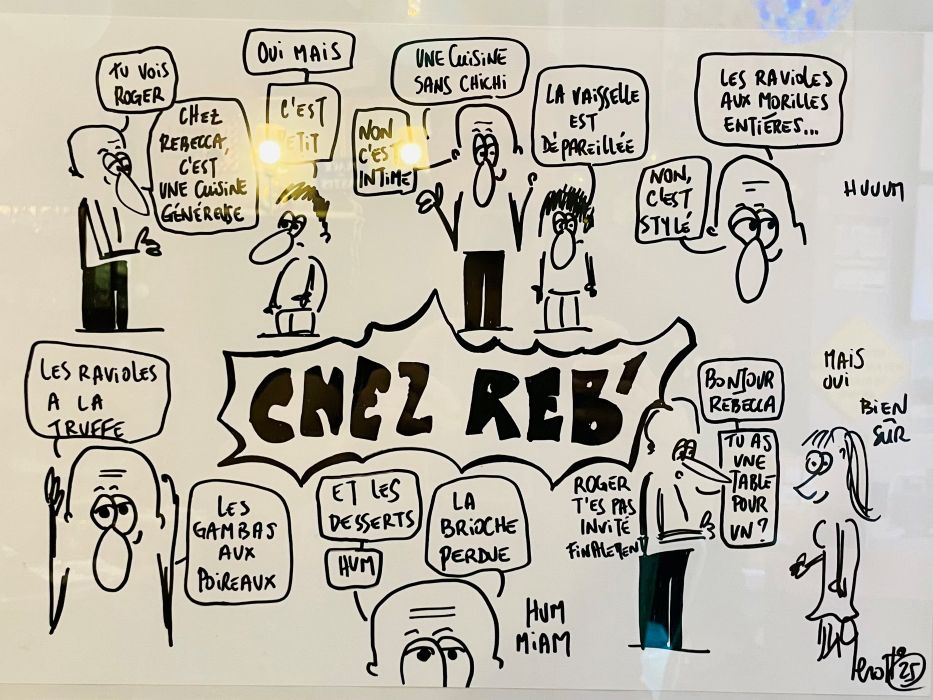 TU VOIS
ROGER
CHEZ
REBECCA,
C'EST
UNE CUISINE
GÉNÉREUSE
OUI MAIS
C'EST
PETIT
NON
C'EST
INTIME
UNE CUISINE
SANS CHICHI
LA VAISSELLE
EST
DÉPAREILLÉE
NON,
C'EST
STYLÉ
LES RAVIOLES
AUX MORILLES
ENTIÈRES...
HUUUM
CHEZ REB'
LES RAVIOLES
A LA
TRUFFE
LES
GAMBAS
AUX
POIREAUX
ET LES
DESSERTS
HUM
LA
BRIOCHE
PERDUE
HUM
MIAM
ROGER
T'ES PAS
INVITÉ
FINALEMENT
BONJOUR
REBECCA
TU AS
UNE
TABLE
POUR
UN?
MAIS
OUI
BIEN
SÛR
25